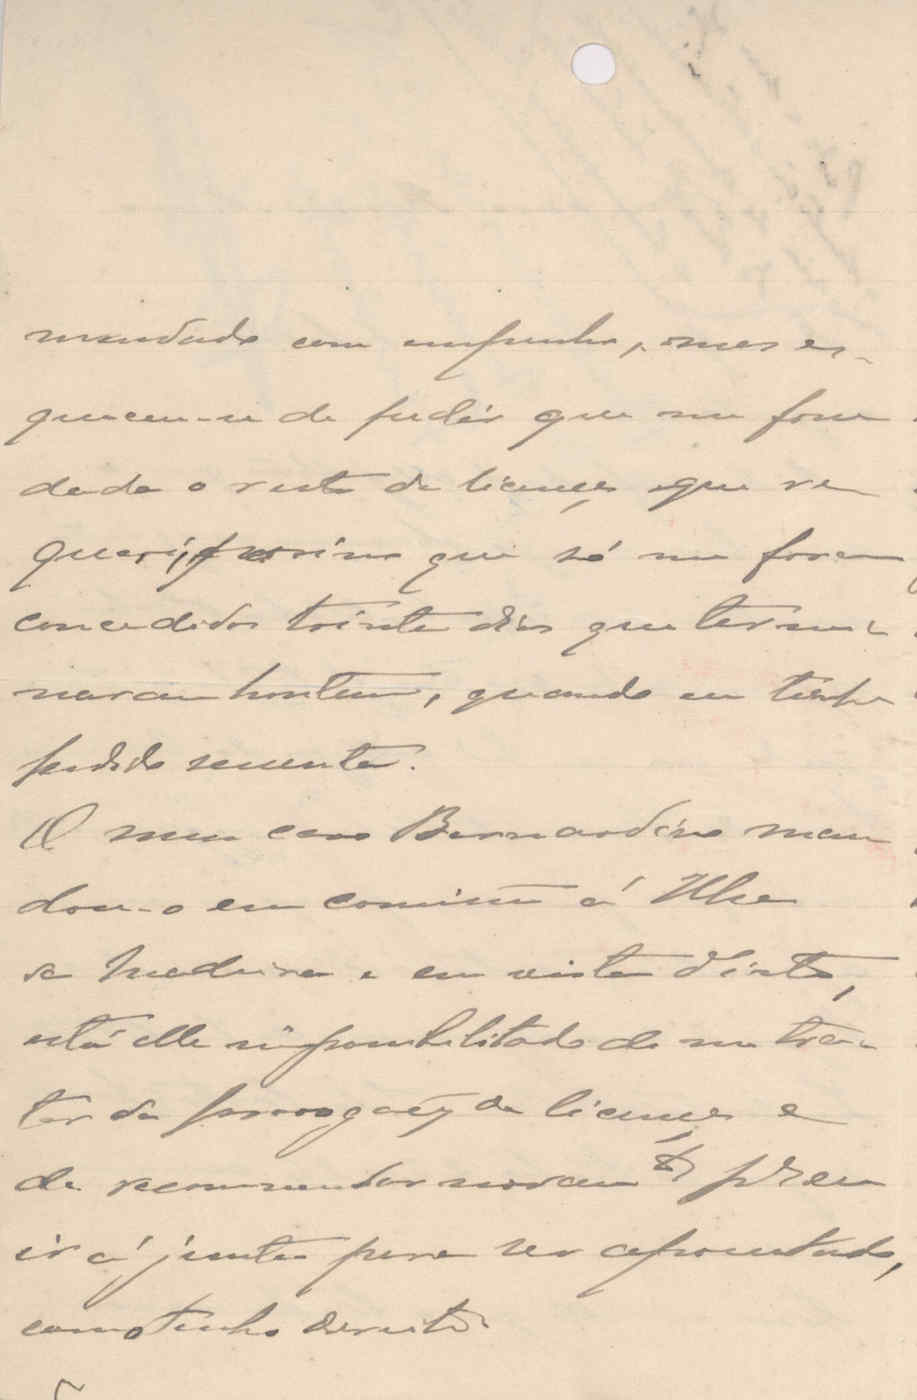 mendado com empenho, mas es-
queceu-se de pedir que me fosse
dada o resto da licença que re
queri, porisso que só me foram
concedidos trinta dias que termi-
naram hontem, quando eu tinha
pedido secenta.
O meu caro Bernardino man
dou-o em comissão á Ilha
da Madeira e em vista d'isto,
está elle impossibilitado de me tra-
tar da prorogação da licença e
de recommendar novamte pra eu
ir á junta para ser aposentado,
como tenho direito.